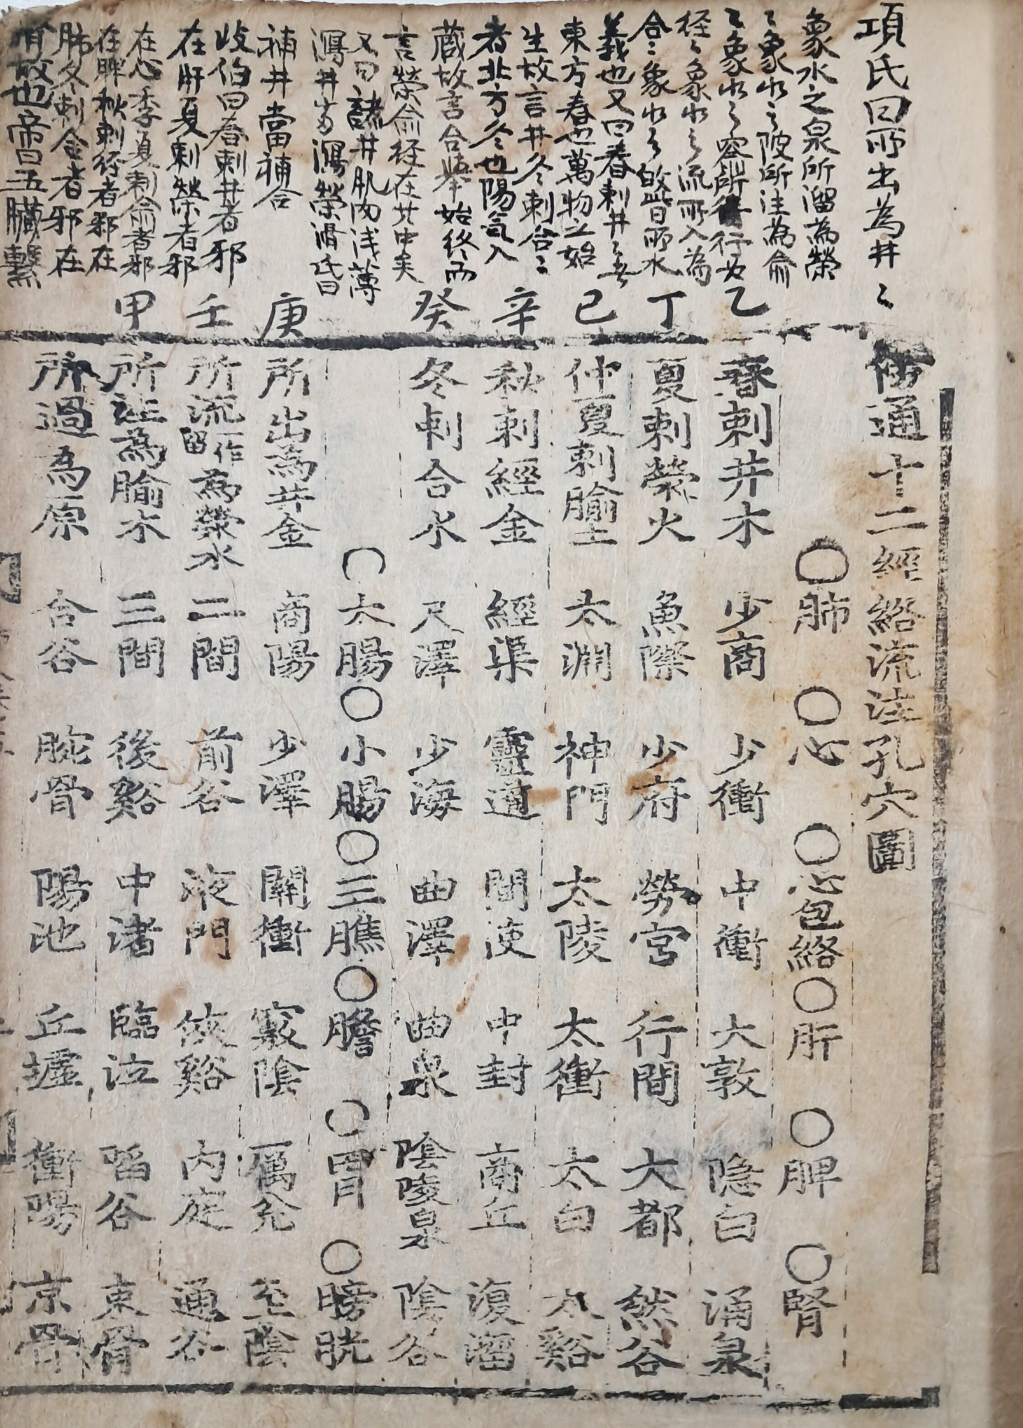 項氏曰所出為井〻
象水之泉所溜為滎
〻象水之陂所注為俞
〻象水之窬所行為
経〻象水之流所入為
合〻象水之故皆曰所水
義也又曰春刺井〻者
東方春也萬物之始
生故言井冬刺合〻
者北方冬也陽気入
蔵故言合舉始终而
言滎俞経在其中矣
又曰諸井肌肉浅薄
瀉井當瀉滎滑氏曰
補井當補合
岐伯曰春刺井者邪
在肝夏刺滎者邪
在心季夏刺俞者邪
在脾秋刺経者邪在
肺冬刺合者邪在
腎故也帝曰五臓繋
十二經絡流注孔穴圖
〇肺 〇心 〇心包絡 〇肝 〇脾 〇腎
乙 春刺井木 少商 少衝 中衝 大敦 隐白 涌泉
丁 夏刺滎火 魚際 少府 勞宮 行間 大都 然谷
己 仲夏刺腧土 太淵 神門 太陵 太衝 太白 太谿
辛 秋刺經金 經渠 靈道 間使 中封 商丘 復溜
癸 冬刺合水 尺澤 少海 曲澤 曲泉 陰陵泉 陰谷
〇大腸 〇小腸 〇三膲 〇膽 〇胃 〇膀胱
庚 所出為井金 商陽 少澤 關衝 竅陰 厲兊 至陰
壬 所流一作留為滎水 二間 前谷 液門 俠谿 内庭 通谷
甲 所注為腧木 三間 後谿 中渚 臨泣 䧟谷 束骨
所過為原 合谷 腕骨 陽池 丘墟 衝陽 京骨